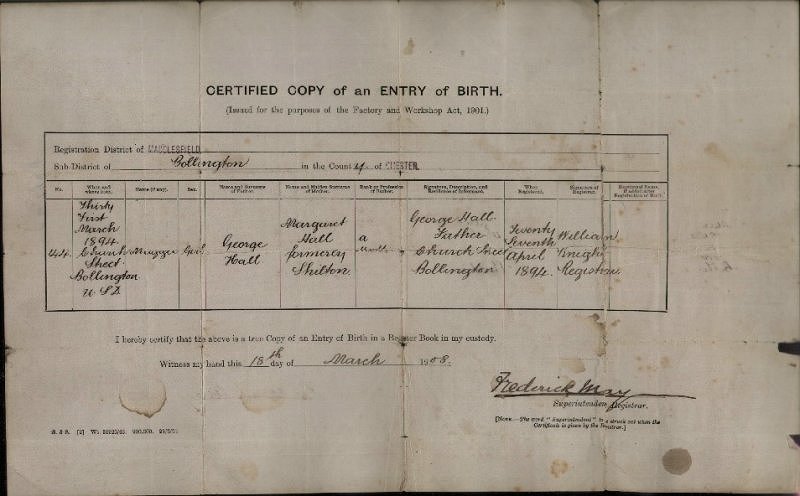 CERTIFIED COPY of an ENTRY of BIRTH.
(Issued for the purposes of the Factory and Workshop Act, 1901.)
Registration District of MACCLESFIELD
Sub-District of Bollington in the County of CHESTER
No. When and where born. Name (if any). Sex. Name and Surname of Father. Name and Maiden Surname of Mother. Rank or Profession of Father. Signature, Description, and Residence of Informant. When Registered. Signature of Registrar. Name, if added after Registration of Birth.
Thirty
First
March
1894
Church
Street
Bollington
U.S.D.
Maggie
Girl
George
Hall
Margaret
Hall
formerly
Shilton
a
George Hall
Father
Church Street
Bollington
Twenty
Seventh
April
1894.
William
Knight
Registrar
I hereby certify that the above is a true Copy of an Entry of Birth in a Register Book in my custody.
Witness my hand this 18th day of March 1908.
Frederick May
Superintendent Registrar.
[NOTE.—The word "Superintendent" is to be struck out when the
Certificate is given by the Registrar.]